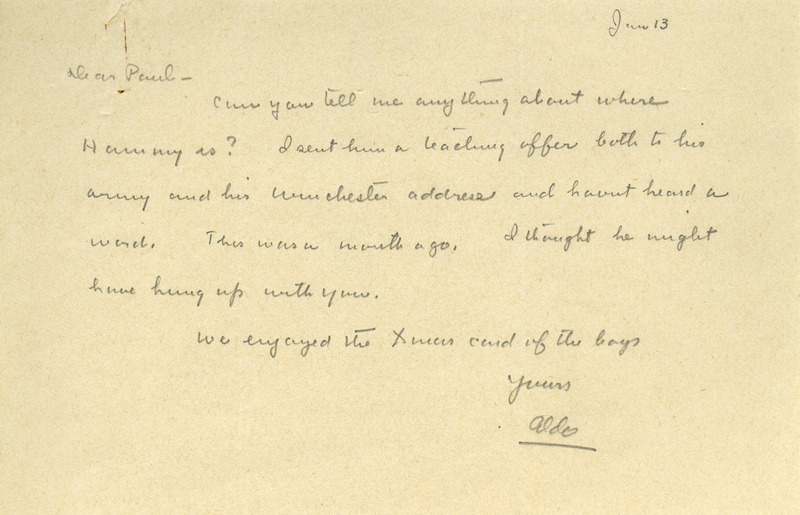 Jan 13
Dear Paul —
Can you tell me anything about where
Hammy is? I sent him a teaching offer both to his
army and his Winchester address and havnt heard a
word. This was a month ago. I thought he might
have hung up with you.
We enjoyed the Xmas card of the boys
Yours
Aldo